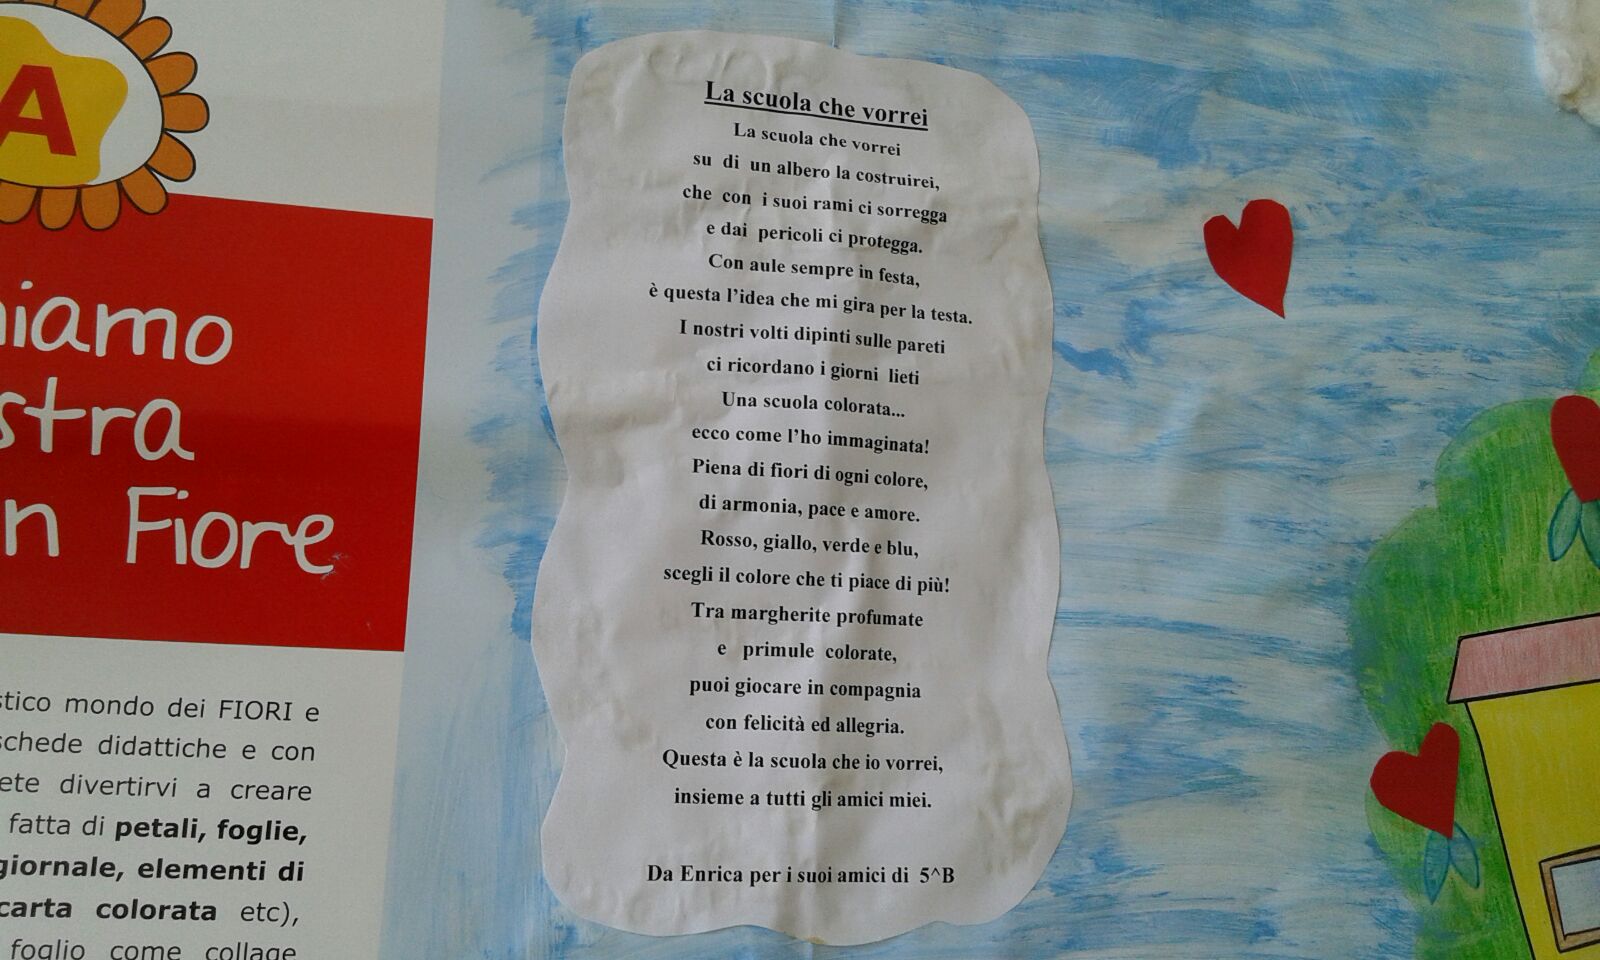 A
iamo
stra
n Fiore
stico mondo dei FIORI e
schede didattiche e con
ete divertirvi a creare
fatta di petali, foglie,
giornale, elementi di
carta colorata etc),
foglio come collage
La scuola che vorrei
La scuola che vorrei
su di un albero la costruirei,
che con i suoi rami ci sorregga
e dai pericoli ci protegga.
Con aule sempre in festa,
è questa l'idea che mi gira per la testa.
I nostri volti dipinti sulle pareti
ci ricordano i giorni lieti
Una scuola colorata...
ecco come l'ho immaginata!
Piena di fiori di ogni colore,
di armonia, pace e amore.
Rosso, giallo, verde e blu,
scegli il colore che ti piace di più!
Tra margherite profumate
e primule colorate,
puoi giocare in compagnia
con felicità ed allegria.
Questa è la scuola che io vorrei,
insieme a tutti gli amici miei.
Da Enrica per i suoi amici di 5^B